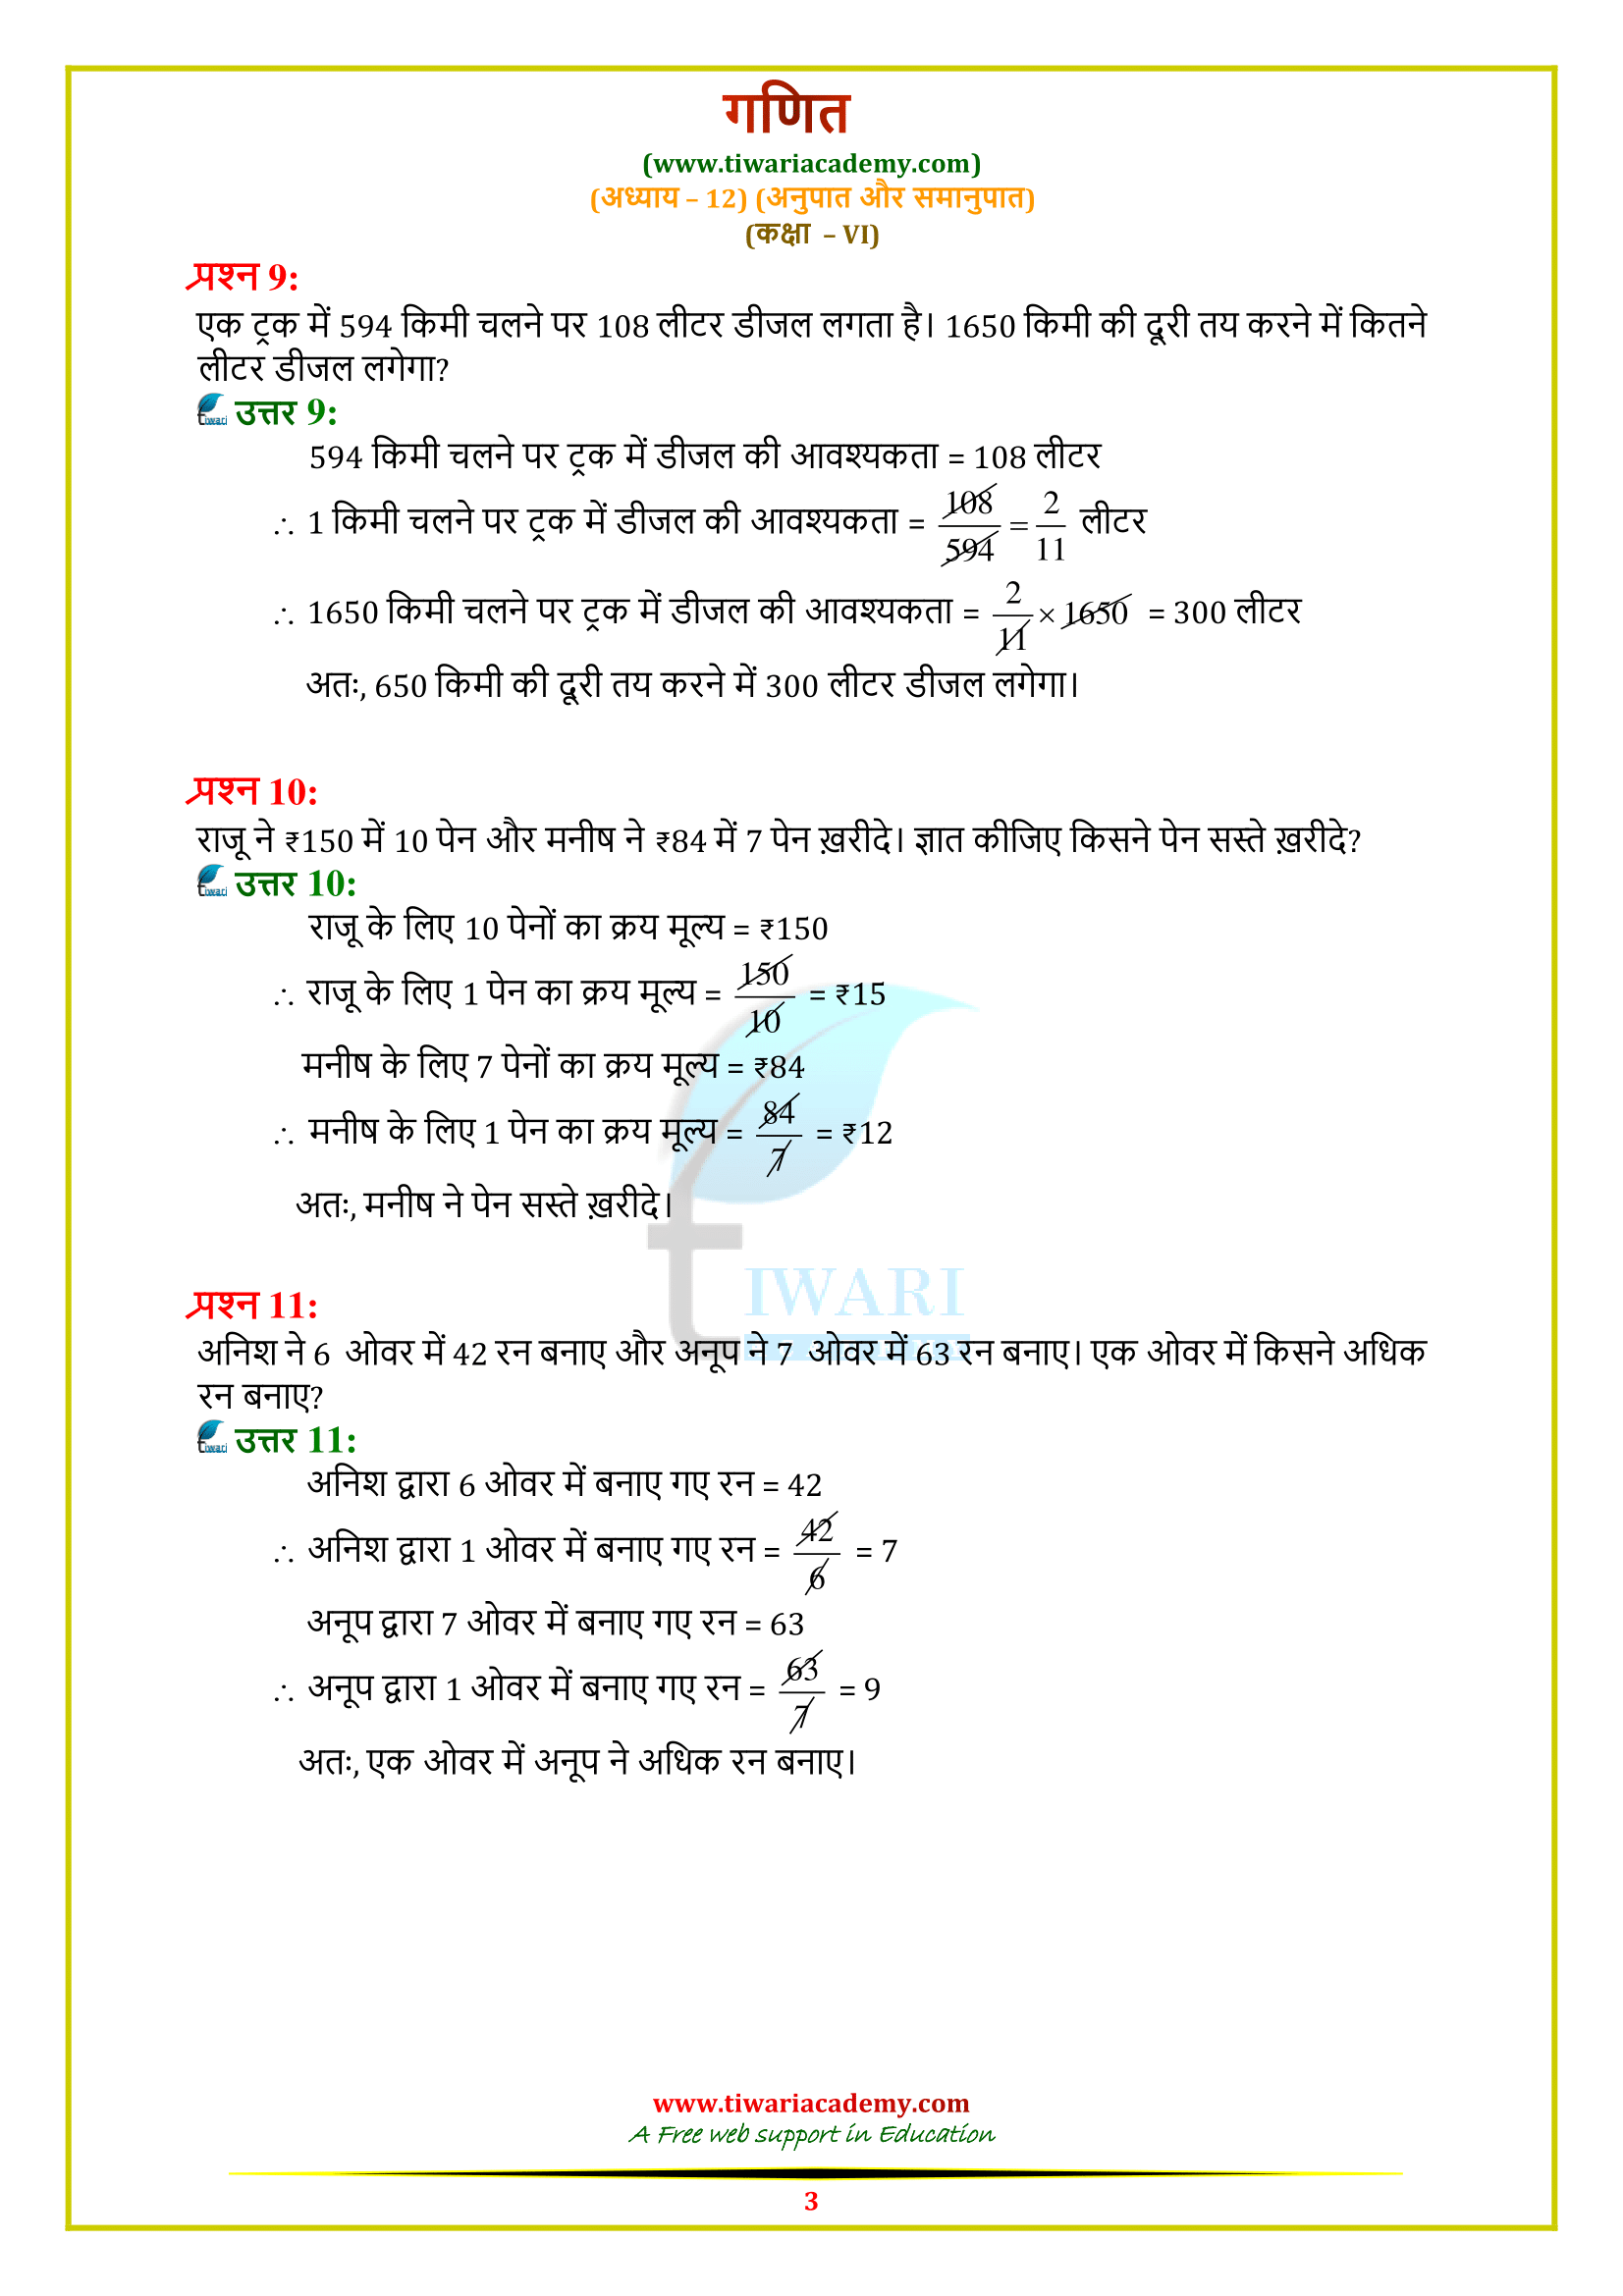 गणित
(www.tiwariacademy.com)
(अध्याय – 12) (अनुपात और समानुपात)
(कक्षा – VI)
प्रश्न 9:
एक ट्रक में 594 किमी चलने पर 108 लीटर डीजल लगता है। 1650 किमी की दूरी तय करने में कितने
लीटर डीजल लगेगा?
उत्तर 9:
594 किमी चलने पर ट्रक में डीजल की आवश्यकता = 108 लीटर
∴ 1 किमी चलने पर ट्रक में डीजल की आवश्यकता = 108/594 = 2/11 लीटर
∴ 1650 किमी चलने पर ट्रक में डीजल की आवश्यकता = 2/11 × 1650 = 300 लीटर
अतः, 650 किमी की दूरी तय करने में 300 लीटर डीजल लगेगा।
प्रश्न 10:
राजू ने ₹150 में 10 पेन और मनीष ने ₹84 में 7 पेन ख़रीदे। ज्ञात कीजिए किसने पेन सस्ते ख़रीदे?
उत्तर 10:
राजू के लिए 10 पेनों का क्रय मूल्य = ₹150
∴ राजू के लिए 1 पेन का क्रय मूल्य = 150/10 = ₹15
मनीष के लिए 7 पेनों का क्रय मूल्य = ₹84
∴ मनीष के लिए 1 पेन का क्रय मूल्य = 84/7 = ₹12
अतः, मनीष ने पेन सस्ते ख़रीदे।
tIWARI
प्रश्न 11:
अनिश ने 6 ओवर में 42 रन बनाए और अनूप ने 7 ओवर में 63 रन बनाए। एक ओवर में किसने अधिक
रन बनाए?
उत्तर 11:
अनिश द्वारा 6 ओवर में बनाए गए रन = 42
∴ अनिश द्वारा 1 ओवर में बनाए गए रन = 42/6 = 7
अनूप द्वारा 7 ओवर में बनाए गए रन = 63
∴ अनूप द्वारा 1 ओवर में बनाए गए रन = 63/7 = 9
अतः, एक ओवर में अनूप ने अधिक रन बनाए।
www.tiwariacademy.com
A Free web support in Education
3